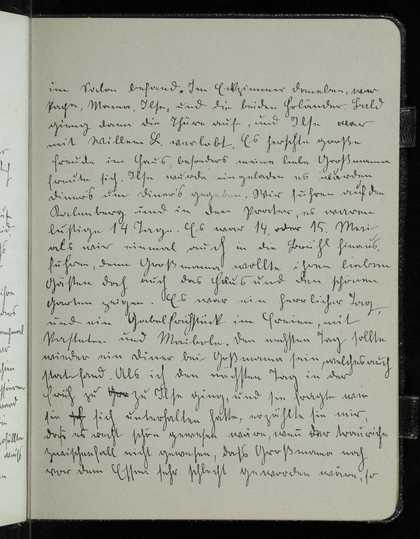 im Salon befand. Im Eckzimmer daneben, war
Papa, Mama, Ilse, und die beiden Holländer. Bald
gieng dann die Thüre auf, und Ilse war
mit Willem B. verlobt. Es herschte große
Freude im Haus, besonders meine liebe Großmama
freute sich. Ilse wurde eingeladen es wurden
diner's um diner's gegeben. Wir fuhren auf den
Kahlenberg und in den Prater, es waren
lustige 14 Tage. Es war 14. oder 15. Mai
als wir einmal auch in die Brühl hinaus
fuhren, denn Großmama wollte ihren lieben
Gästen doch auch das Haus und den schönen
Garten zeigen. Es war ein herrlicher Tag,
und ein Gabelfrühstück im Freien, mit
Pasteten und Maibole. Den nächsten Tag sollte
wieder ein diner bei Großmama sein, welches auch
stattfand. Als ich den nächsten Tag in der
Früh zu zu Ilse gieng, und sie fragte wie
sie sich unterhalten hätte, erzählte sie mir,
daß es recht schön gewesen wäre, wenn der traurige
zwischenfall nicht gewesen, daß Großmama noch
vor dem Essen sehr schlecht geworden wäre, so